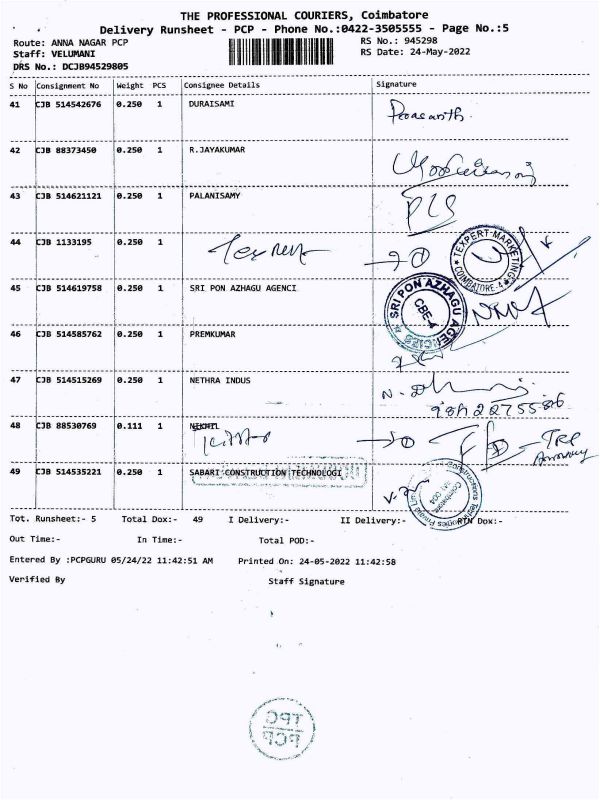 THE PROFESSIONAL COURIERS, Coimbatore
Delivery Runsheet - PCP - Phone No.:0422-3505555 - Page No.:5
Route: ANNA NAGAR PCP RS No.: 945298
Staff: VELUMANI RS Date: 24-May-2022
DRS No.: DCJB94529805
S No Consignment No Weight PCS Consignee Details Signature
41 CJB 514542676 0.250 1 DURAISAMI
42 CJB 88373450 0.250 1 R.JAYAKUMAR
43 CJB 514621121 0.250 1 PALANISAMY
44 CJB 1133195 0.250 1
TEXPERT MARKETING
COIMBATORE-4
45 CJB 514619758 0.250 1 SRI PON AZHAGU AGENCI
SRI PON AZHAGU AGENCIES
CBE-4
46 CJB 514585762 0.250 1 PREMKUMAR
47 CJB 514515269 0.250 1 NETHRA INDUS
48 CJB 88530769 0.111 1 NIKHIL
49 CJB 514535221 0.250 1 SABARI CONSTRUCTION TECHNOLOGI
Tot. Runsheet:- 5 Total Dox:- 49 I Delivery:- II Delivery:- RTN Dox:-
Out Time:- In Time:- Total POD:-
Entered By :PCPGURU 05/24/22 11:42:51 AM Printed On: 24-05-2022 11:42:58
Verified By Staff Signature
TPC
PCP